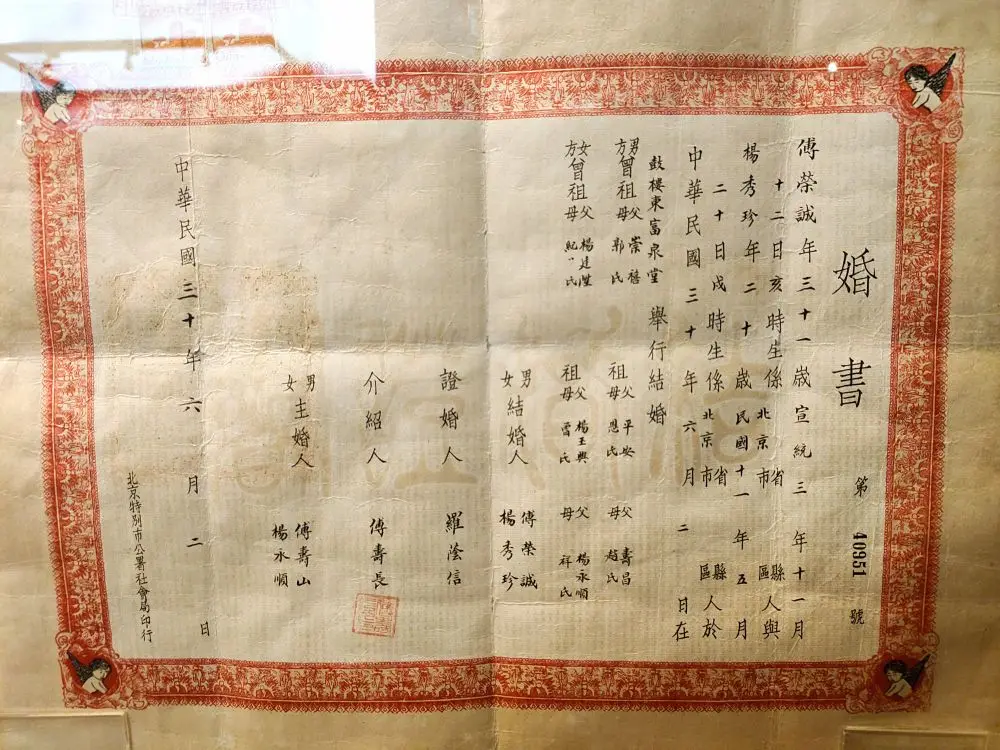 婚書
第 40951 號
傅榮誠年三十一歲宣統三年十一月
十二日亥時生係北京省市縣區人與
楊秀珍年二十歲民國十一年五月
二十日戌時生係北京省市縣區人於
中華民國三十年六月二日在
鼓樓東富泉堂 舉行結婚
男方曾祖父 崇禧 母 郭氏 祖父 平安 母 恩氏 父 壽昌 母 趙氏
女方曾祖父 楊建 母 紀氏 祖父 楊玉興 母 曹氏 父 楊永順 母 祥氏
男結婚人 傅榮誠
女結婚人 楊秀珍
證婚人 羅蔭信
介紹人 傅壽長
男主婚人 傅壽山
女主婚人 楊永順
中華民國三十年六月二日
北京特別市公署社會局印行